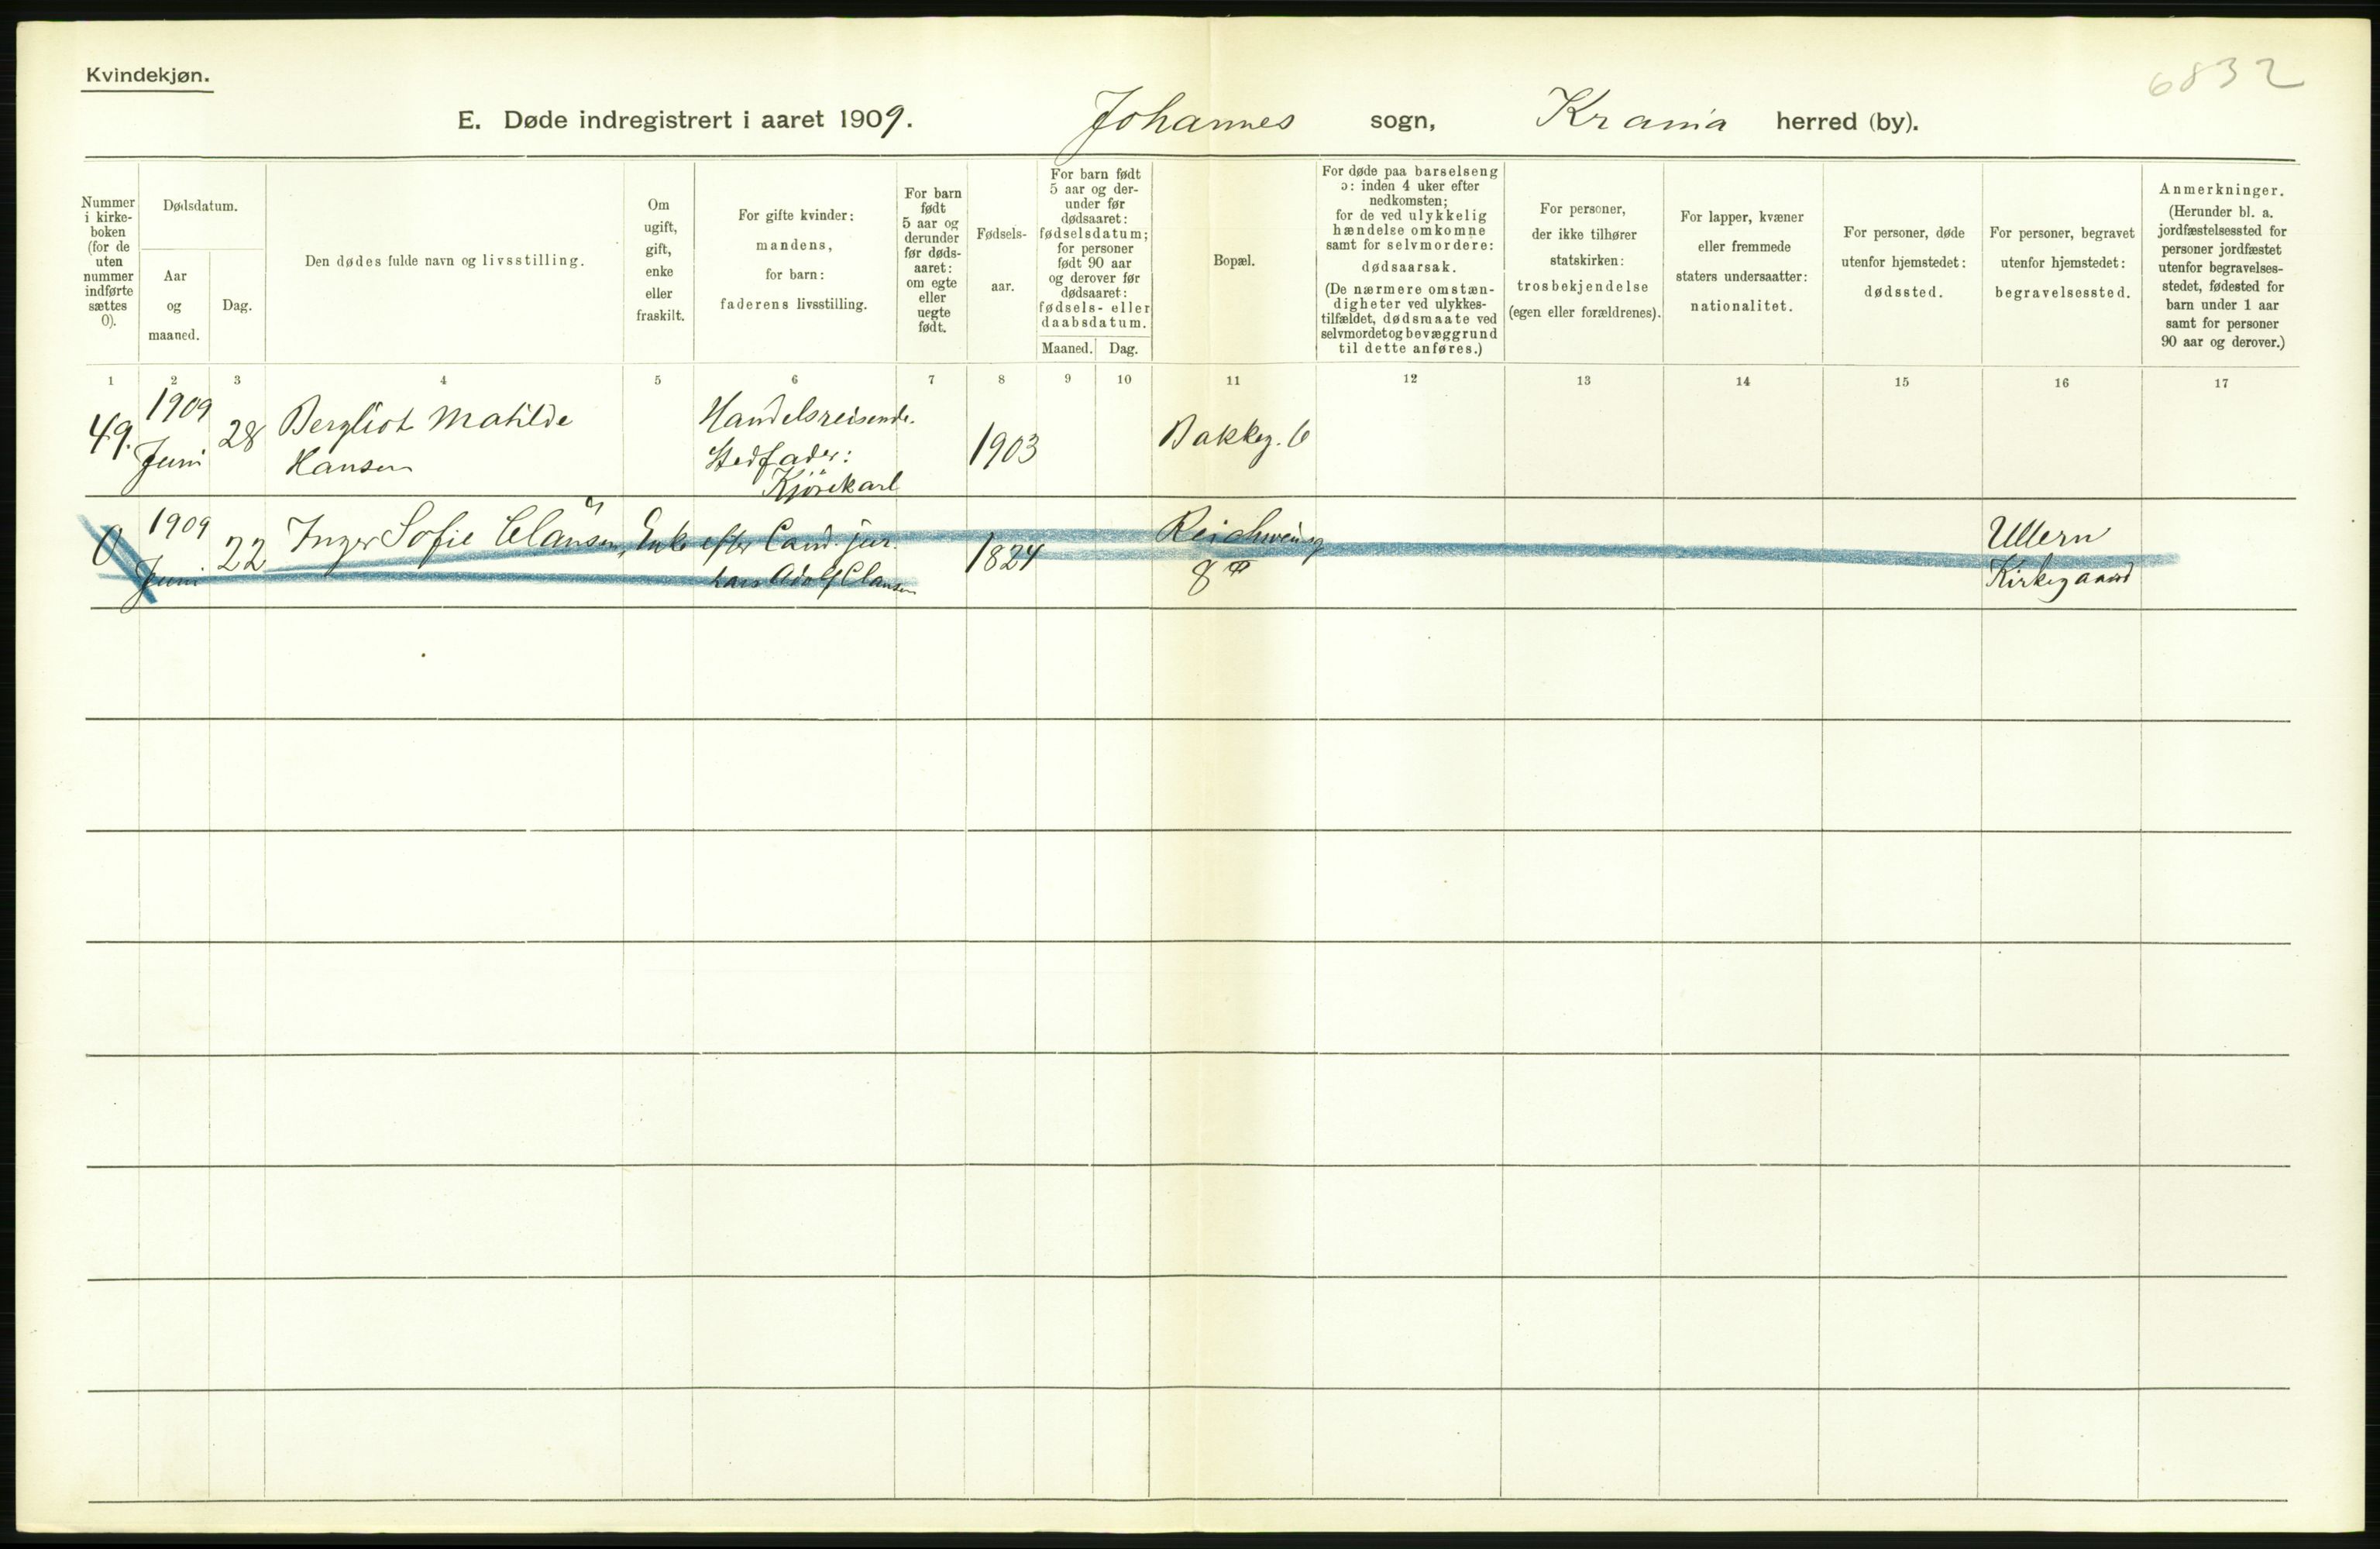 Kvindekjøn.
6832
E. Døde indregistrert i aaret 1909. Johannes sogn, Krania herred (by).
Nummer i kirke- boken (for de uten nummer indførte sættes 0).
Dødsdatum.
Aar og maaned.
Dag.
Den dødes fulde navn og livsstilling.
Om ugift, gift, enke eller fraskilt.
For gifte kvinder: mandens, for barn: faderens livsstilling.
For barn født 5 aar og derunder før døds- aaret: om egte eller uegte født.
Fødsels- aar.
For barn født 5 aar og der- under før dødsaaret: fødselsdatum; for personer født 90 aar og derover før dødsaaret: fødsels- eller daabsdatum.
Maaned. Dag.
Bopæl.
For døde paa barselseng ɔ: inden 4 uker efter nedkomsten; for de ved ulykkelig hændelse omkomne samt for selvmordere: dødsaarsak. (De nærmere omstæn- digheter ved ulykkes- tilfældet, dødsmaate ved selvmordet og bevæggrund til dette anføres.)
For personer, der ikke tilhører statskirken: trosbekjendelse (egen eller forældrenes).
For lapper, kvæner eller fremmede staters undersaatter: nationalitet.
For personer, døde utenfor hjemstedet: dødssted.
For personer, begravet utenfor hjemstedet: begravelsessted.
Anmerkninger. (Herunder bl. a. jordfæstelsessted for personer jordfæstet utenfor begravelses- stedet, fødested for barn under 1 aar samt for personer 90 aar og derover.)
1 2 3 4 5 6 7 8 9 10 11 12 13 14 15 16 17
49. 1909 Juni 28 Bergliot Matilde Hansen Handelsreisende. Stedfader: Kjörekarl 1903 Bakkeg. 6
0 1909 Juni 22 Inger Sofie Clausen, Enke efter Cand. jur. Lars Adolf Clausen 1824 8 Ullern Kirkegaard